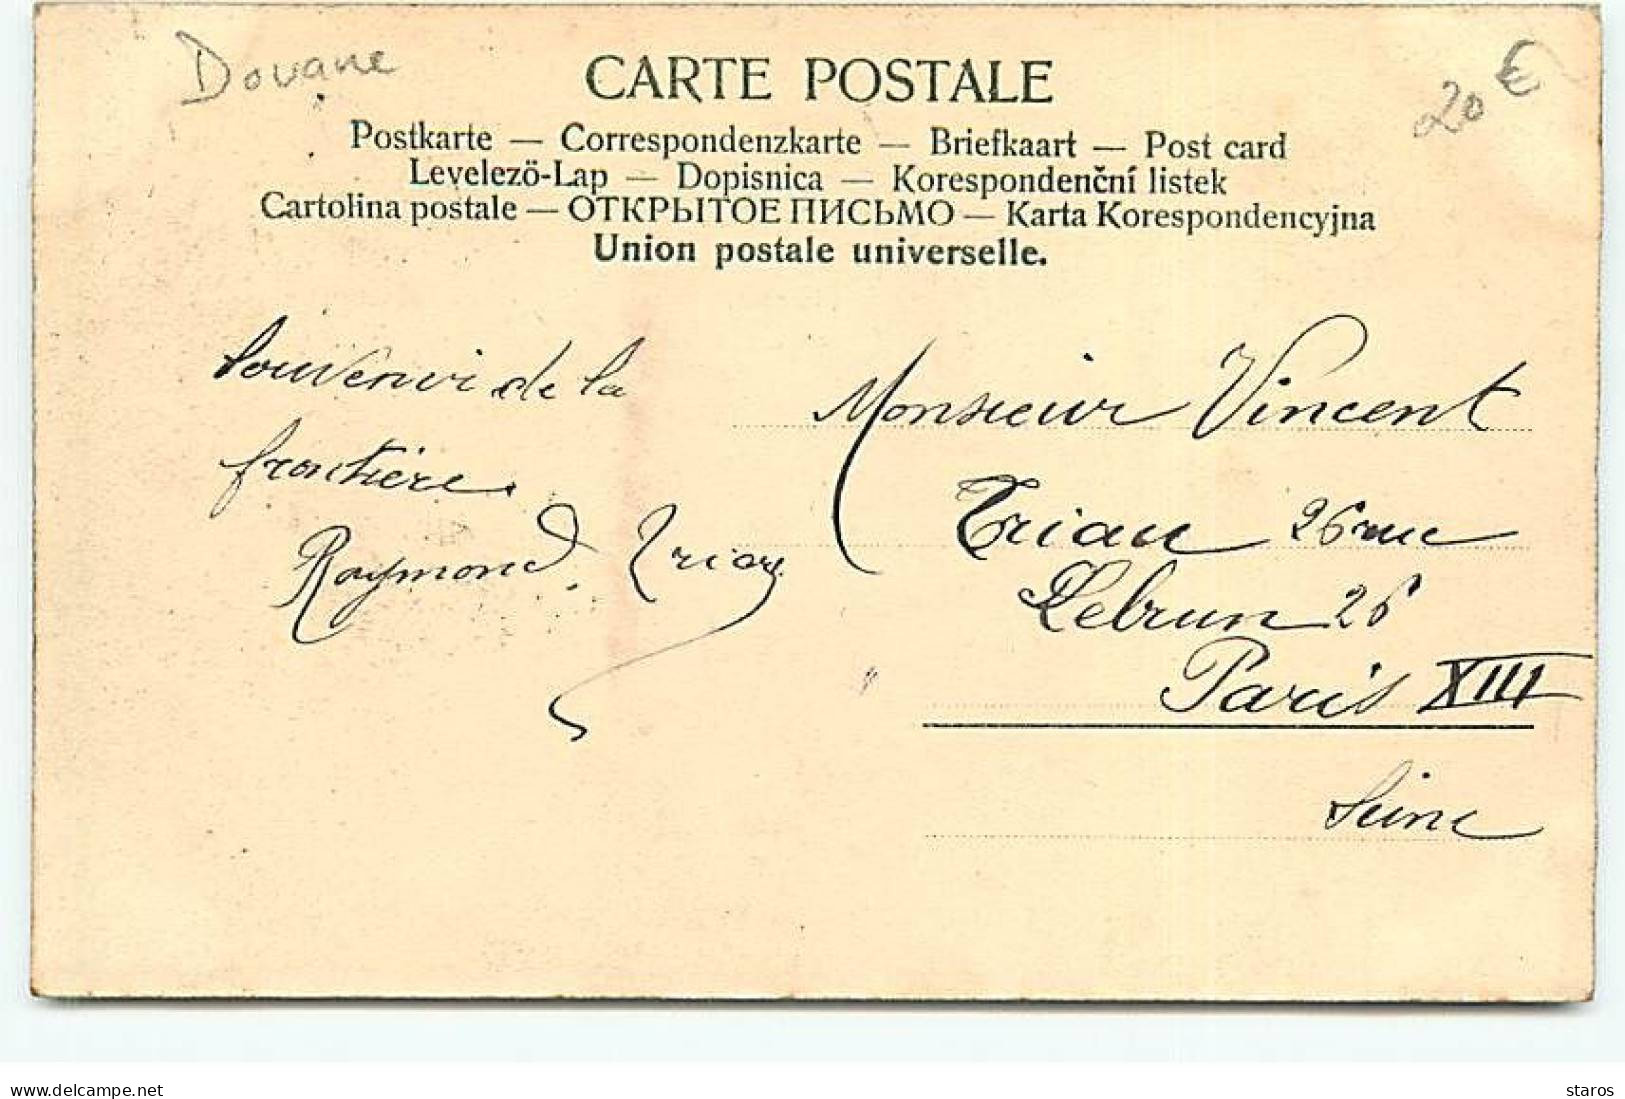 Douane
20 €
CARTE POSTALE
Postkarte — Correspondenzkarte — Briefkaart — Post card
Levelező-Lap — Dopisnica — Korespondenční listek
Cartolina postale — ОТКРЫТОЕ ПИСЬМО — Karta Korespondencyjna
Union postale universelle.
Souvenir de la
frontière.
Raymond. Triau
Monsieur Vincent
Triau 26 rue
Lebrun 26
Paris XIII
Seine
www.delcampe.net
staros